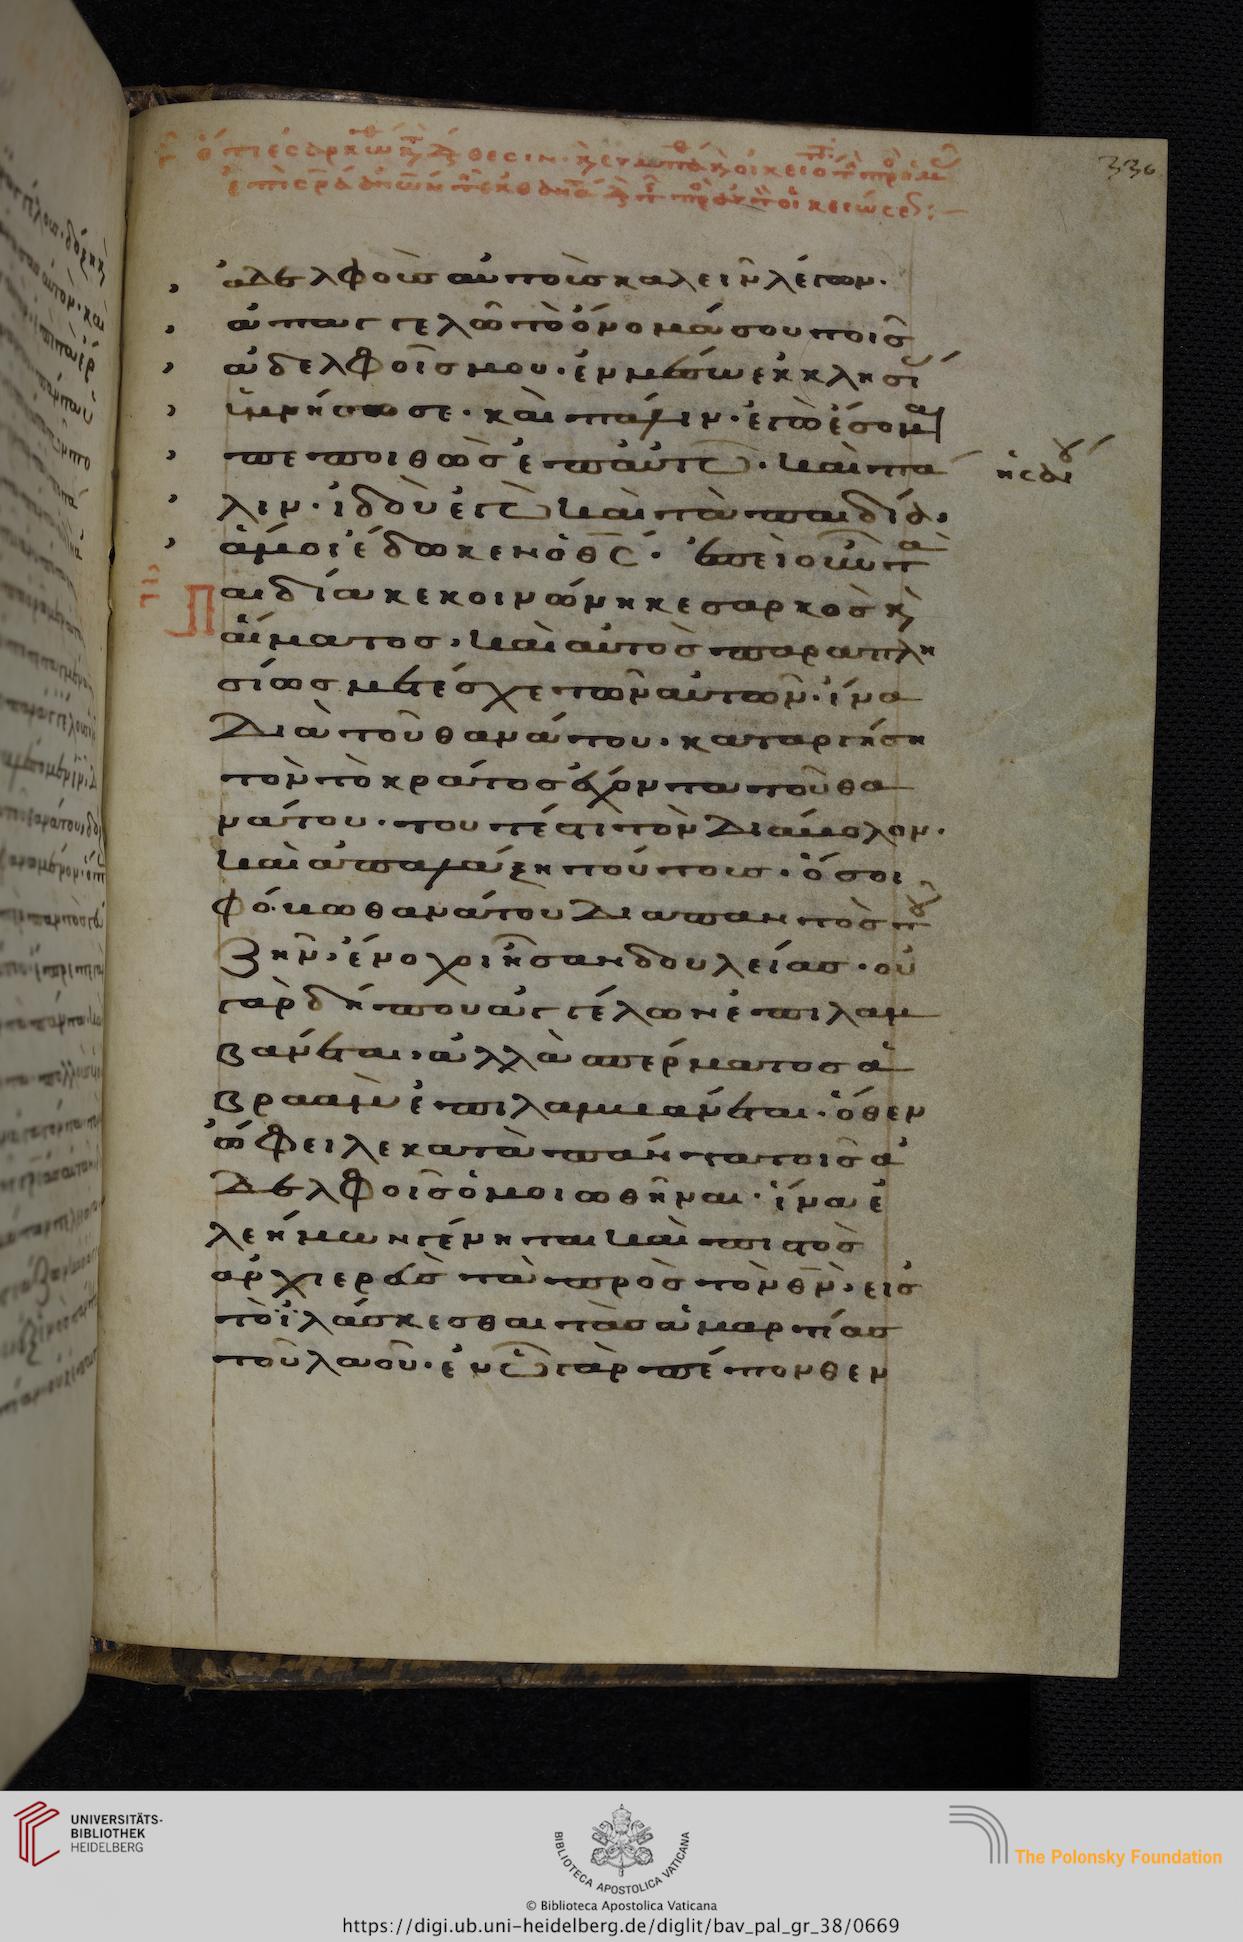 336
ἀδελφοὺς αὐτοὺς καλεῖν λέγων·
ἀπαγγελῶ τὸ ὄνομά σου τοῖς
ἀδελφοῖς μου· ἐν μέσω ἐκκλησί
ὑμνήσω σε· καὶ πάλιν· ἐγὼ ἔσομαι
πεποιθὼς ἐπ' αὐτῶ· καὶ πά
λιν· ἰδοὺ ἐγὼ καὶ τὰ παιδία
ἅ μοι ἔδωκεν ὁ θς· ἐπεὶ οὖν τὰ
Παιδία κεκοινώνηκε σαρκὸς κ
αἵματος· καὶ αὐτὸς παραπλη
σίως μετέσχε τῶν αὐτῶν· ἵνα
διὰ τοῦ θανάτου· καταργήση
τὸν τὸ κράτος ἔχοντα τοῦ θα
νάτου· τουτέστι τὸν διάβολον·
καὶ ἀπαλλάξη τούτους· ὅσοι
φόβω θανάτου διαπαντὸς τοῦ
ζῆν· ἔνοχοι ἦσαν δουλείας· οὐ
γὰρ δήπου ἀγγέλων ἐπιλαμ
βάνεται· ἀλλὰ σπέρματος ἀ
βραὰμ ἐπιλαμβάνεται· ὅθεν
ὤφειλε κατὰ πάντα τοῖς ἀ
δελφοῖς ὁμοιωθῆναι· ἵνα ἐ
λεήμων γένηται καὶ πιστὸς
ἀρχιερεὺς τὰ πρὸς τὸν θν· εἰς
τὸ ἱλάσκεσθαι τὰς ἁμαρτίας
τοῦ λαοῦ· ἐν ὧ γὰρ πέπονθεν
ἡσαΐου
UNIVERSITÄTS-
BIBLIOTHEK
HEIDELBERG
BIBLIOTECA APOSTOLICA VATICANA
The Polonsky Foundation
© Biblioteca Apostolica Vaticana
https://digi.ub.uni-heidelberg.de/diglit/bav_pal_gr_38/0669